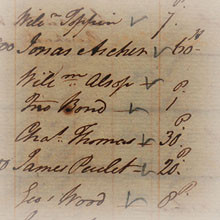 Will.m Tappin ✓ 7.
00 Jonas Archer ✓ 60
Will.m Alsop ✓ P.
Jno Bond ✓ 1
P.
Chas. Thomas ✓ 30.
P.
0 James Peulet ✓ 20.
P.
Geo. Wood ✓ 8